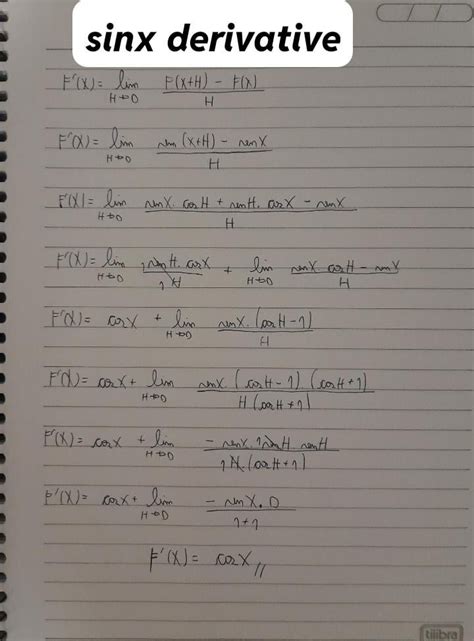 sinx derivative
F'(X) = lim H→0 F(X+H) - F(X) / H
F'(X) = lim H→0 sen (X+H) - senX / H
F'(X) = lim H→0 senX. cosH + senH. cosX - senX / H
F'(X) = lim H→0 1 senH. cosX / 1 H + lim H→0 senX cosH - senX / H
F'(X) = cosX + lim H→0 senX. (cosH - 1) / H
F'(X) = cosX + lim H→0 senX. (cosH - 1) (cosH + 1) / H (cosH + 1)
F'(X) = cosX + lim H→0 - senX. 1 senH. senH / 1 H. (cosH + 1)
F'(X) = cosX + lim H→0 - senX. 0 / 1 + 1
F'(X) = cosX //
tilibra